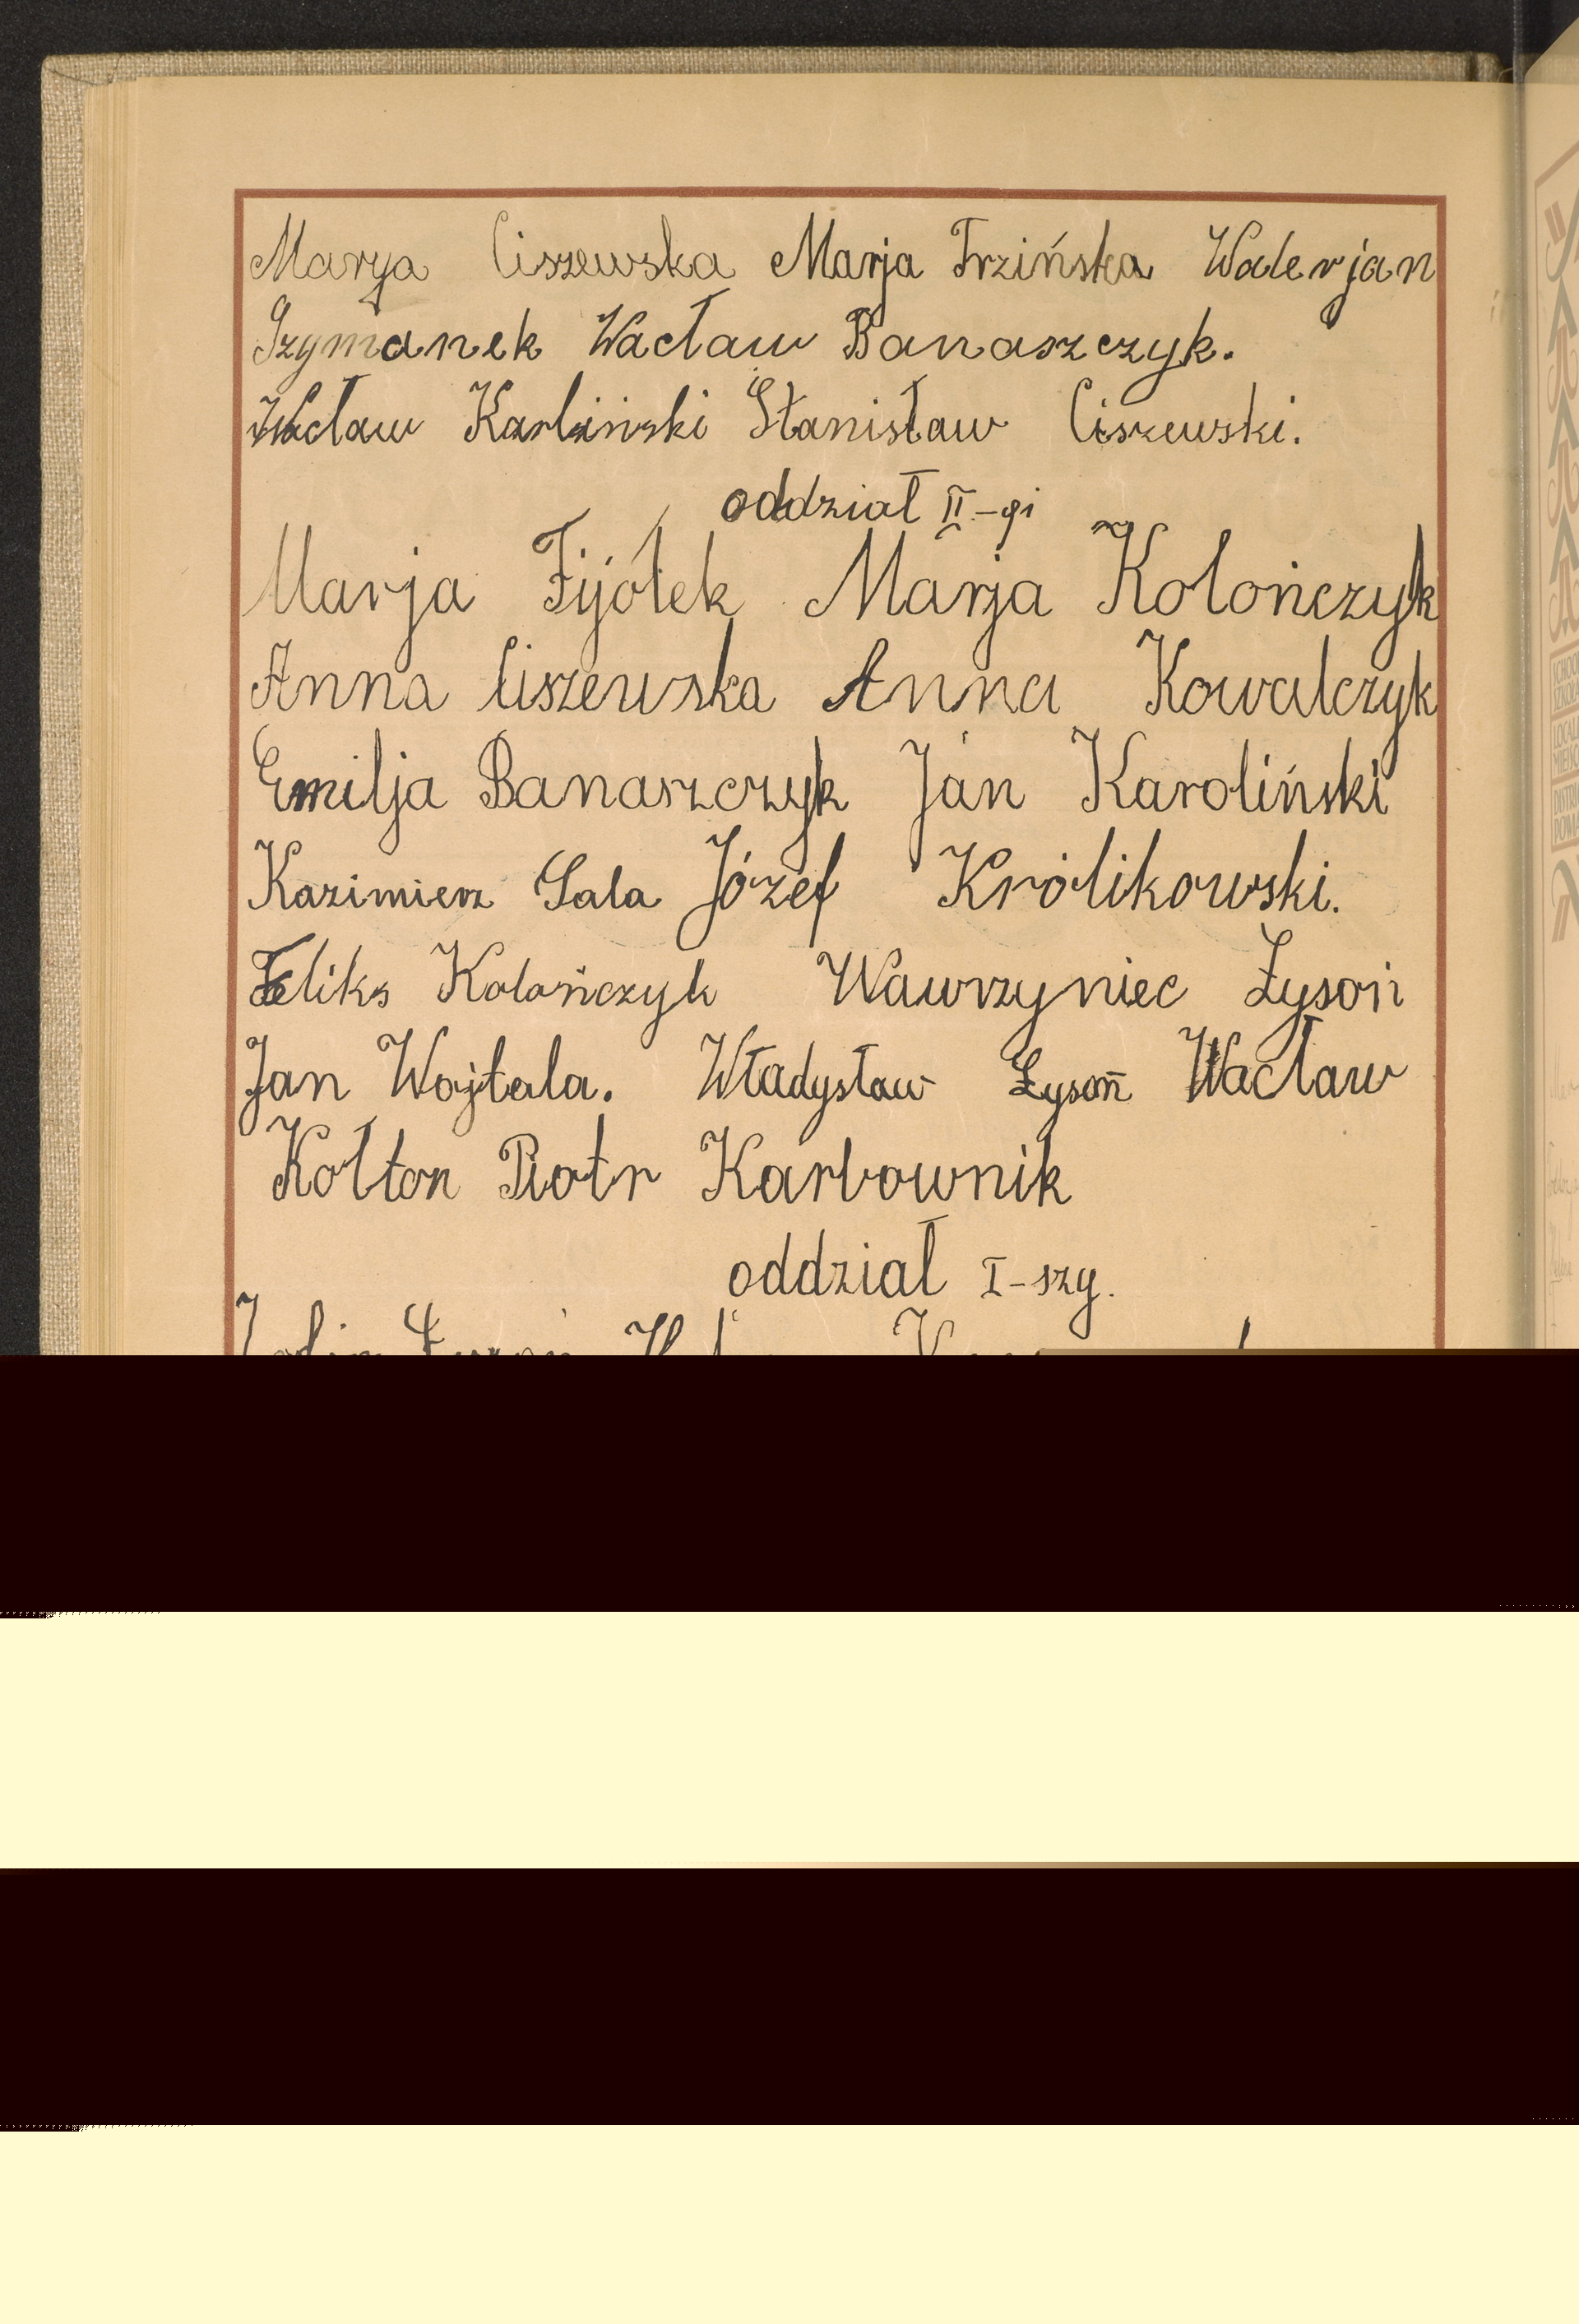 Marya Ciszewska Marja Trzińska Walerjan
Szymanek Wacław Banaszczyk.
Wacław Karliński Stanisław Ciszewski.
oddział II-gi
Marja Fijołek Marja Kolończyk
Anna Ciszewska Anna Kowalczyk
Emilja Banaszczyk Jan Karoliński
Kazimierz Sala Józef Królikowski.
Feliks Kolończyk Wawrzyniec Łysoń
Jan Wojtala. Władysław Łysoń Wacław
Kołton Piotr Karbownik
oddział I-szy.